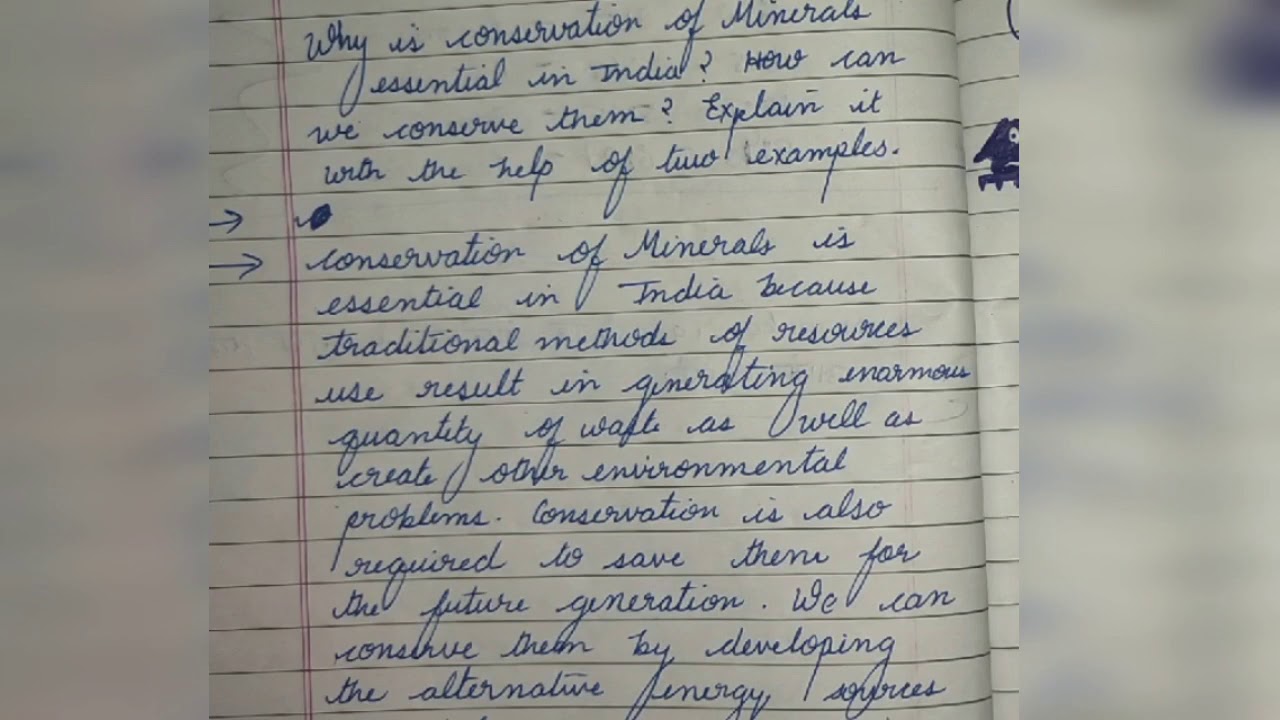 Why is conservation of Minerals
essential in India? How can
we conserve them? Explain it
with the help of two examples.
→
→ conservation of Minerals is
essential in India because
traditional methods of resources
use result in generating enarmous
quantity of waste as well as
create other environmental
problems. Conservation is also
required to save them for
the future generation. We can
conserve them by developing
the alternative energy sources